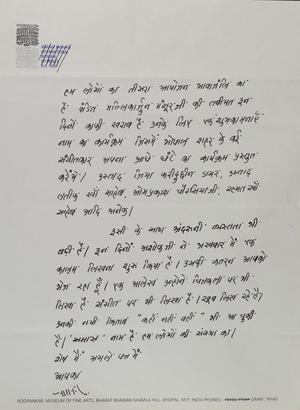 हम लोगों का तीसरा आयोजन भावांजलि का
है पंडित मल्लिकार्जुन मंसूरजी की तबीयत इन
दिनों काफी खराब है उनके लिए एक शुभकामनाएँ
नाम का कार्यक्रम जिसमें भोपाल शहर के कई
संगीतकार अपना आधे घंटे का कार्यक्रम प्रस्तुत
करेंगे। उस्ताद ज़िया फरीदुद्दीन डागर, उस्ताद
लतीफ खाँ साहेब, ओमप्रकाश चौरसियाजी, रहमत खाँ
साहेब आदि अनेक।
इसी के साथ अंदरूनी व्यस्तता भी
बढ़ी है। इन दिनों अशोकजी ने अखबार में एक
कालम लिखना शुरू किया है। उसकी कतरन आपको
भेज रहा हूँ। एक आलेख उन्होंने चित्रकला पर भी
लिखा है संगीत पर भी लिखा है। खूब लिख रहे हैं।
उनकी नयी किताब "कहीं नहीं वहीं" भी आ चुकी
है। नाम है हम लोगों की संस्था का।
शेष मैं अगले पत्र में
आपका
ROOPANKAR, MUSEUM OF FINE ARTS, BHARAT BHAWAN SHAMLA HILL, BHOPAL, M.P. INDIA PHONES : GRAM : WHAG